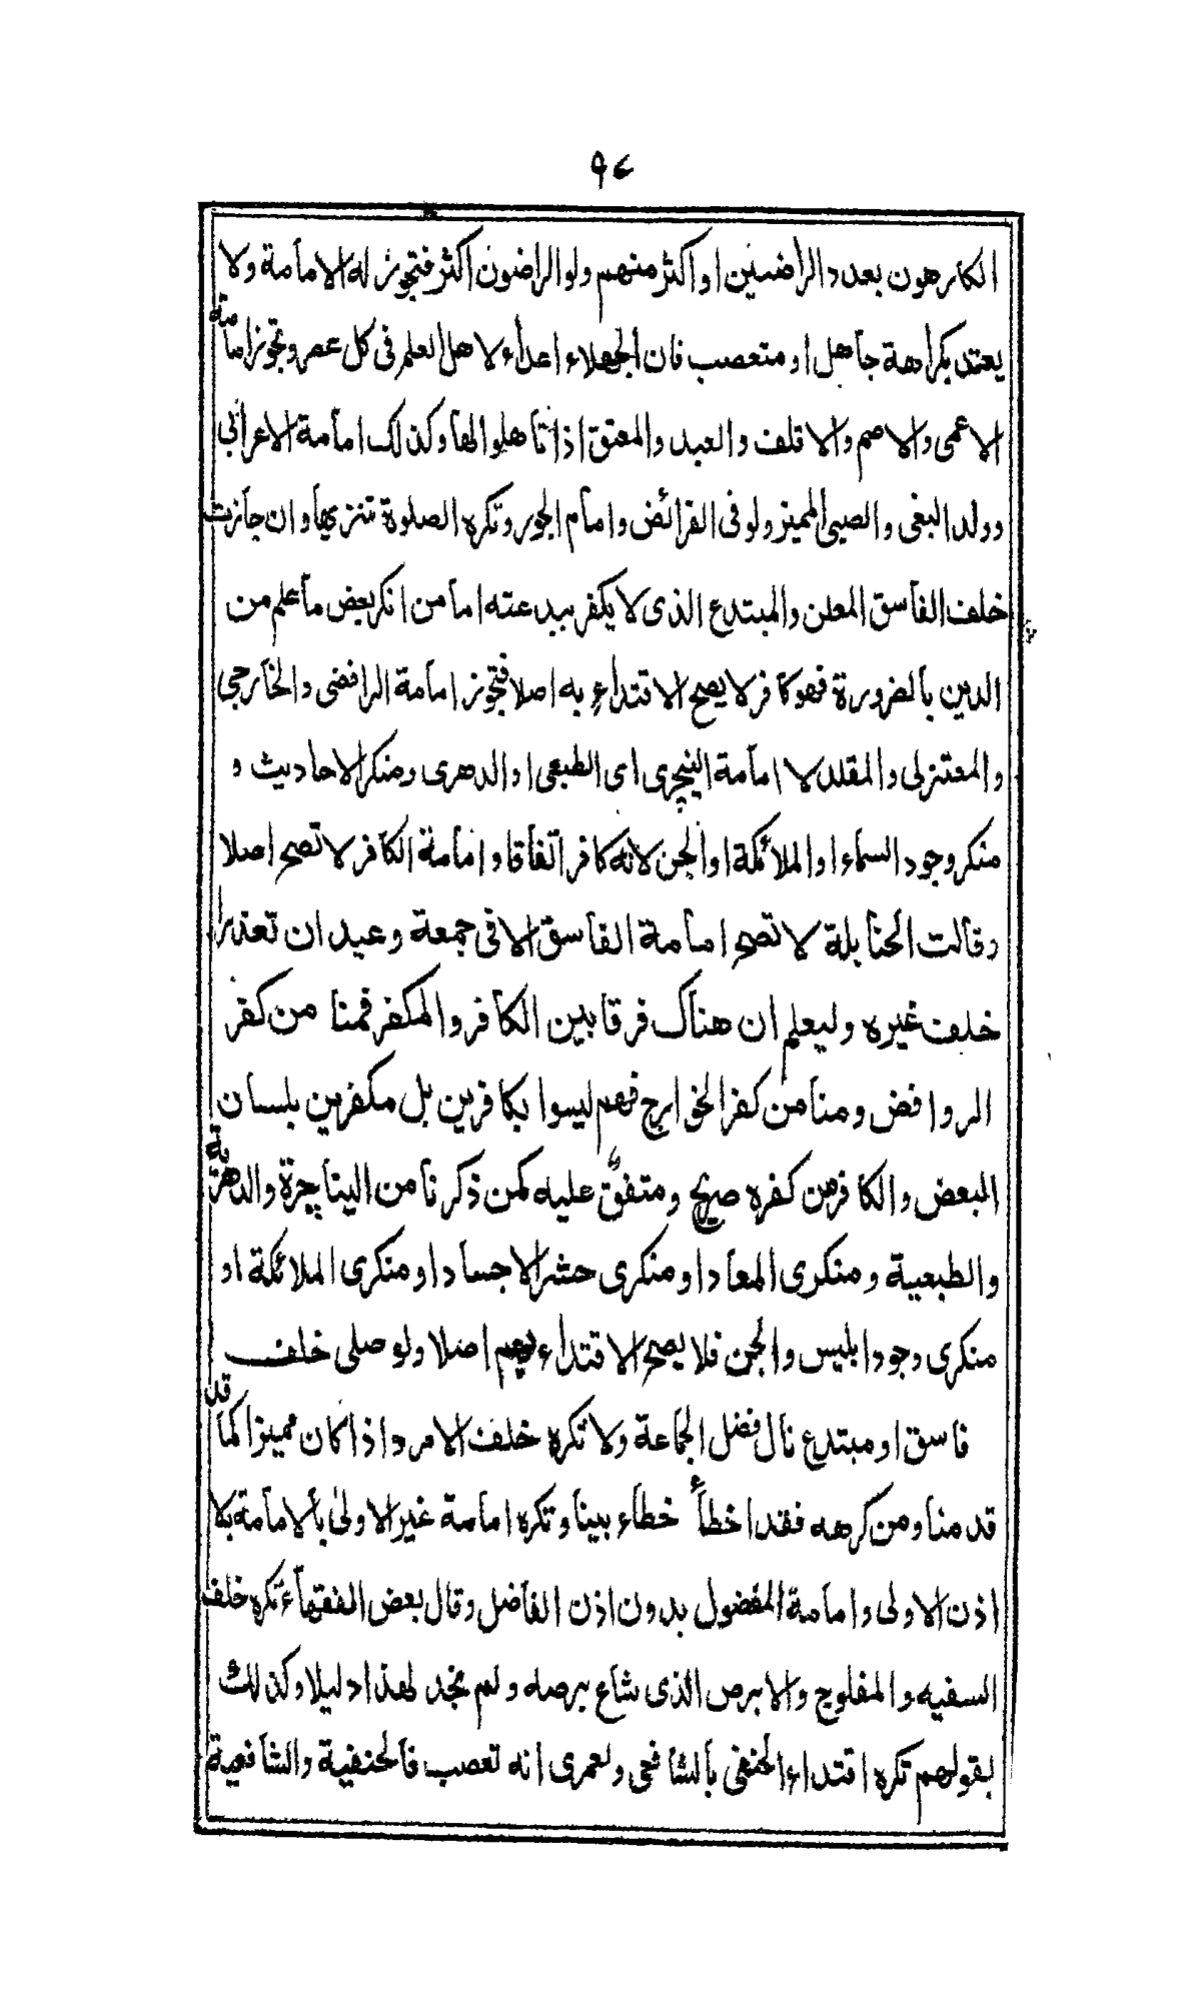 ٩٧
الكارهون بعدد الراضين او اكثر منهم ولو الراضون اكثر فتجوز له الامامة ولا
يعتد بكراهة جاهل او متعصب فان الجهلاء اعداء لاهل العلم فى كل عصر وتجوز امامة
الاعمى والاصم والاقلف والعبد والمعتق اذا تأهلوا لها وكذلك امامة الاعرابى
وولد البغى والصبى المميز ولو فى الفرائض وامام الجور وتكره الصلوة تنزيها وان جازت
خلف الفاسق المعلن والمبتدع الذى لا يكفر ببدعته اما من انكر بعض ما علم من
الدين بالضرورة فهو كافر لا يصح الاقتداء به اصلا فتجوز امامة الرافضى والخارجى
والمعتزلى والمقلد لا امامة النيچرى اى الطبعى او الدهرى ومنكر الاحاديث و
منكر وجود السماء او الملائكة او الجن لانه كافر اتفاقا وامامة الكافر لا تصح اصلا
وقالت الحنابلة لا تصح امامة الفاسق الا فى جمعة وعيد ان تعذرا
خلف غيره وليعلم ان هناك فرقا بين الكافر والمكفر فمنا من كفر
الروافض ومنا من كفر الخوارج فهم ليسوا بكافرين بل مكفرين بلسان
البعض والكافر من كفره صريح ومتفق عليه كمن ذكرنا من النياچرة والدهرية
والطبعية ومنكرى المعاد او منكرى حشر الاجساد او منكرى الملائكة او
منكرى وجود ابليس والجن فلا يصح الاقتداء بهم اصلا ولو صلى خلف
فاسق او مبتدع نال فضل الجماعة ولا تكره خلف الامرد اذا كان مميزا كما قد
قدمنا ومن كرهه فقد اخطأ خطاء بينا وتكره امامة غير الاولى بالامامة بلا
اذن الاولى وامامة المفضول بدون اذن الفاضل وقال بعض الفقهاء تكره خلف
السفيه والمفلوج والابرص الذى شاع برصه ولم نجد لهذا دليلا وكذلك
لقولهم تكره اقتداء الحنفى بالشافعى ولعمرى انه تعصب فالحنفية والشافعية